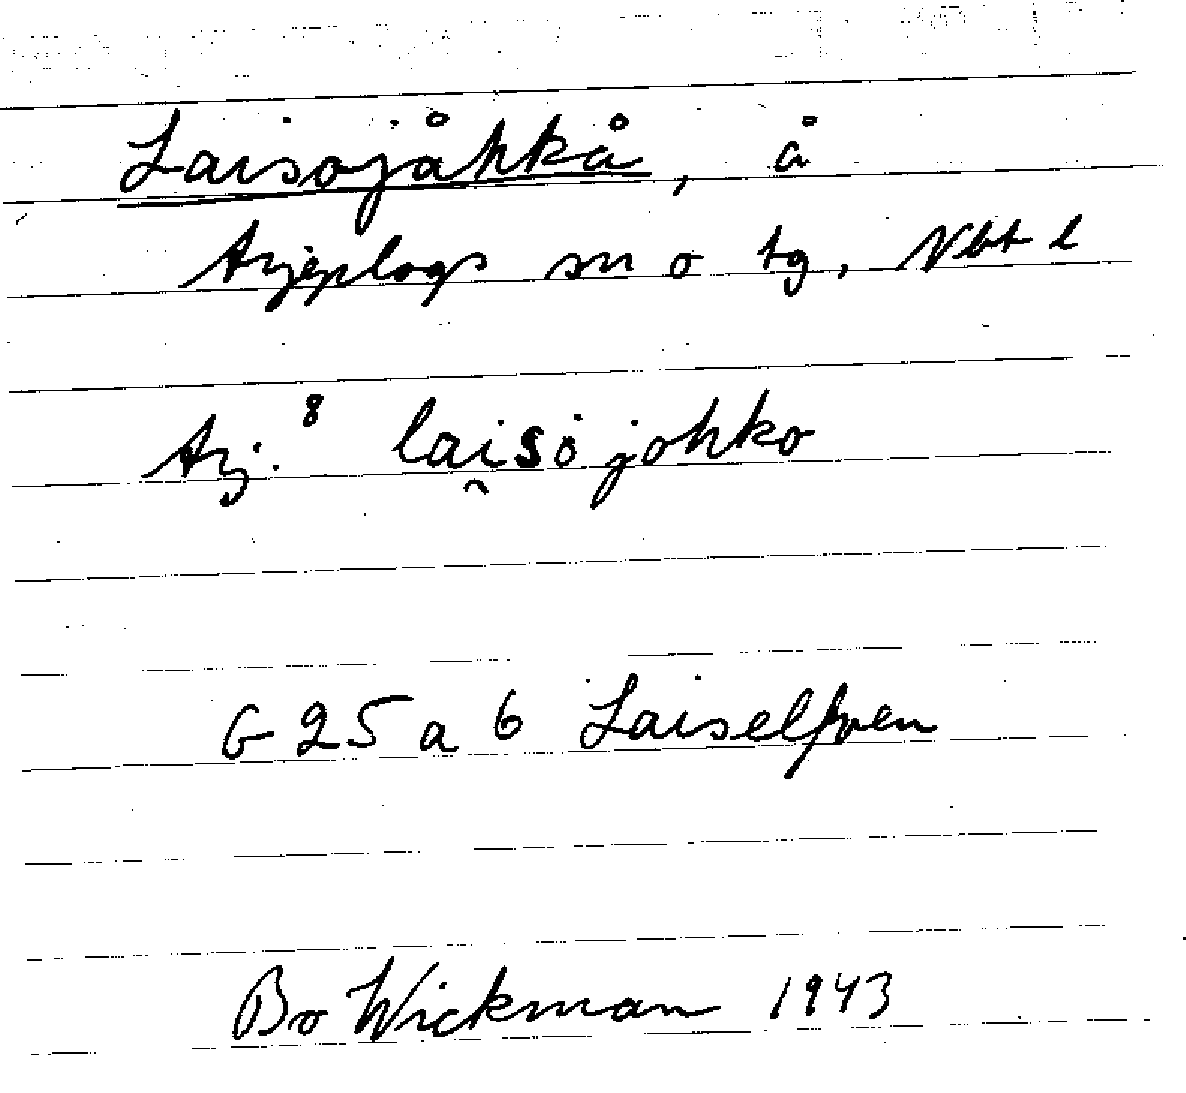 Laisojåhkå, å
Arjeplogs sn o tg, Vbt l
Arj.⁸ lai̯sȯjohko
G 25 a b Laiselfven
Bo Wickman 1943